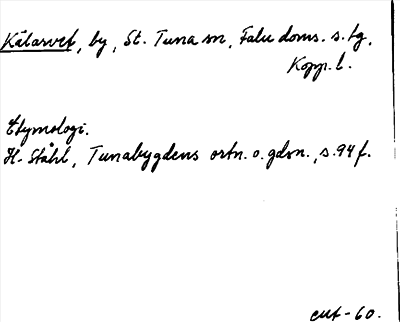 Kålarvet, by, St. Tuna sn, Falu doms. s. tg.
Kopp. l.
Etymologi.
H. Ståhl, Tunabygdens ortn. o. gdsn., s. 94 f.
cuf - 60.